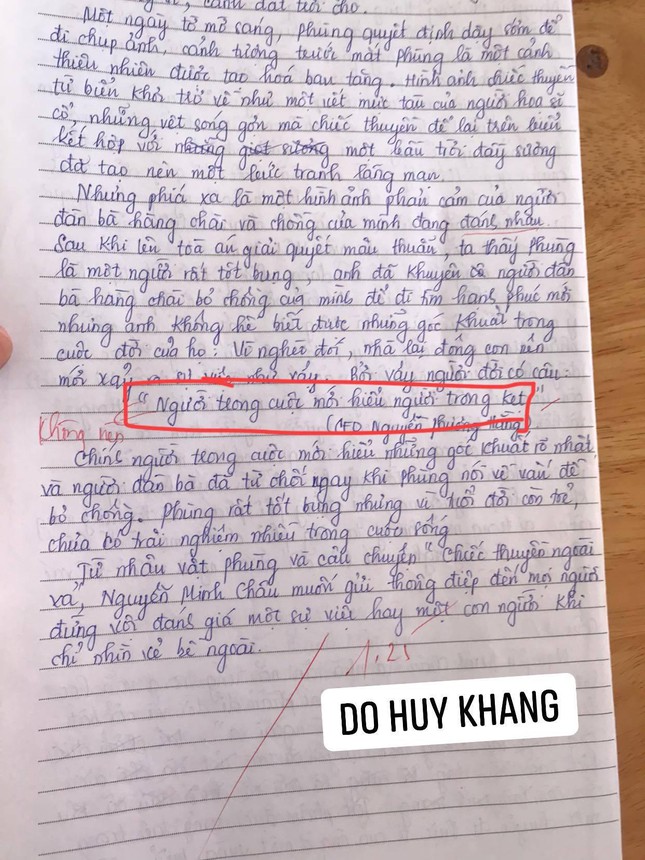 cảnh đất trời cho.
Một ngày tờ mờ sáng, phùng quyết định dậy sớm để
đi chụp ảnh, cảnh tượng trước mắt phùng là một cảnh
thiên nhiên được tạo hoá ban tặng. Hình ảnh chiếc thuyền
từ biển khơi trở về như một vết mực tàu của người hoạ sĩ
cổ, những vệt sóng gợn mà chiếc thuyền để lại trên biển
kết hợp với những giọt sương một bầu trời đầy sương
đã tạo nên một bức tranh lãng mạn.
Nhưng phiá xa là một hình ảnh phản cảm của người
đàn bà hàng chài và chồng của mình đang đánh nhau.
Sau khi lên toà án giải quyết mâu thuẫn, ta thấy Phùng
là một người rất tốt bụng, anh đã khuyên người đàn
bà hàng chài bỏ chồng của mình để đi tìm hạnh phúc mới
nhưng anh không hề biết được những góc khuất trong
cuộc đời của họ. Vì nghèo đói, nhà lại đông con nên
mới xảy ra sự việc như vậy. Bởi vậy người đời có câu:
"Người trong cuộc mới hiểu người trong kẹt"
(CEO Nguyễn Phương Hằng)
Không nên
Chính người trong cuộc mới hiểu những góc khuất rõ nhất
và người đàn bà đã từ chối ngay khi phùng nói về vấn đề
bỏ chồng. Phùng rất tốt bụng nhưng vì tuổi đời còn trẻ,
chưa có trải nghiệm nhiều trong cuộc sống
Từ nhân vật phùng và câu chuyện "Chiếc thuyền ngoài
xa", Nguyễn Minh Châu muốn gửi thông điệp đến mọi người
đừng vội đánh giá một sự việc hay một con người khi
chỉ nhìn vẻ bề ngoài.
1.25
DO HUY KHANG